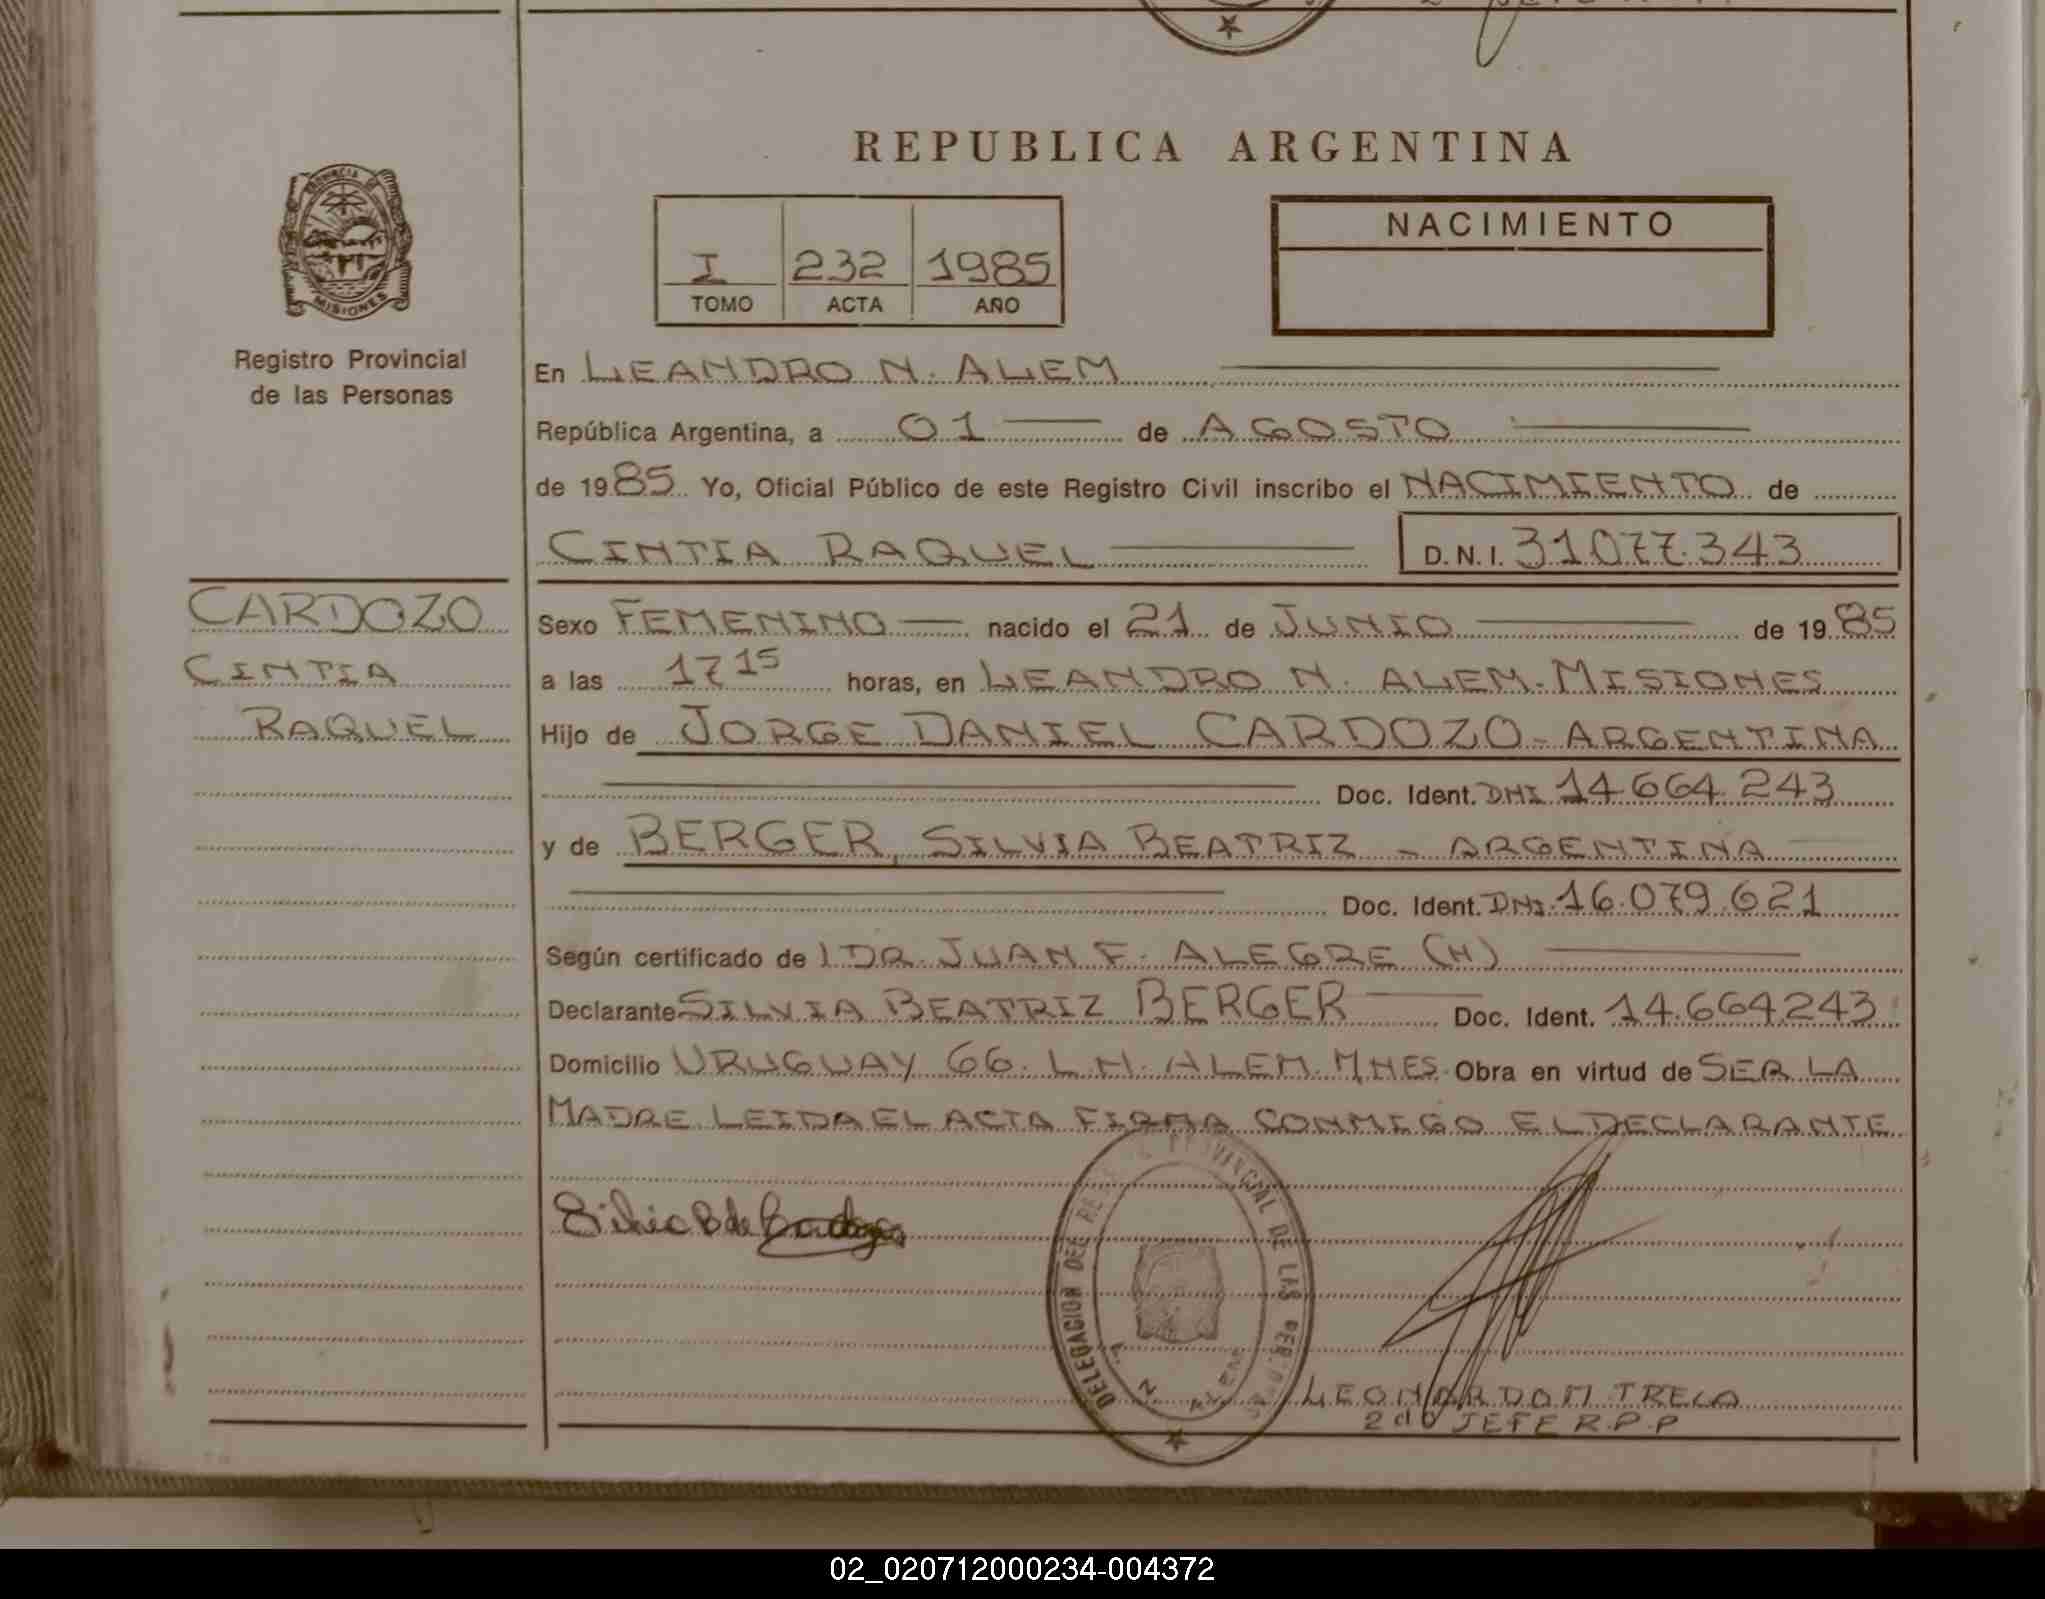 REPUBLICA ARGENTINA
PROVINCIA DE
MISIONES
Registro Provincial
de las Personas
I 232 1985
TOMO ACTA AÑO
NACIMIENTO
En LEANDRO N. ALEM
República Argentina, a 01 de AGOSTO
de 1985 Yo, Oficial Público de este Registro Civil inscribo el NACIMIENTO de
CINTIA RAQUEL D.N.I. 31.077.343
CARDOZO
CINTIA
RAQUEL
Sexo FEMENINO nacido el 21 de JUNIO de 1985
a las 17 15 horas, en LEANDRO N. ALEM. MISIONES
Hijo de JORGE DANIEL CARDOZO - ARGENTINA
Doc. Ident. DNI 14.664.243
y de BERGER, SILVIA BEATRIZ - ARGENTINA
Doc. Ident. DNI. 16.079.621
Según certificado de l DR. JUAN F. ALEGRE (H)
Declarante SILVIA BEATRIZ BERGER Doc. Ident. 14.664.243
Domicilio URUGUAY 66. L.N. ALEM. MNES. Obra en virtud de SER LA
MADRE LEIDA EL ACTA FIRMA CONMIGO EL DECLARANTE
Silvia B de Cardozo
DELEGACION DEL PROVINCIAL DE LAS
L. N.
LEONARDO M TRELA
2do JEFE R.P.P
02_020712000234-004372